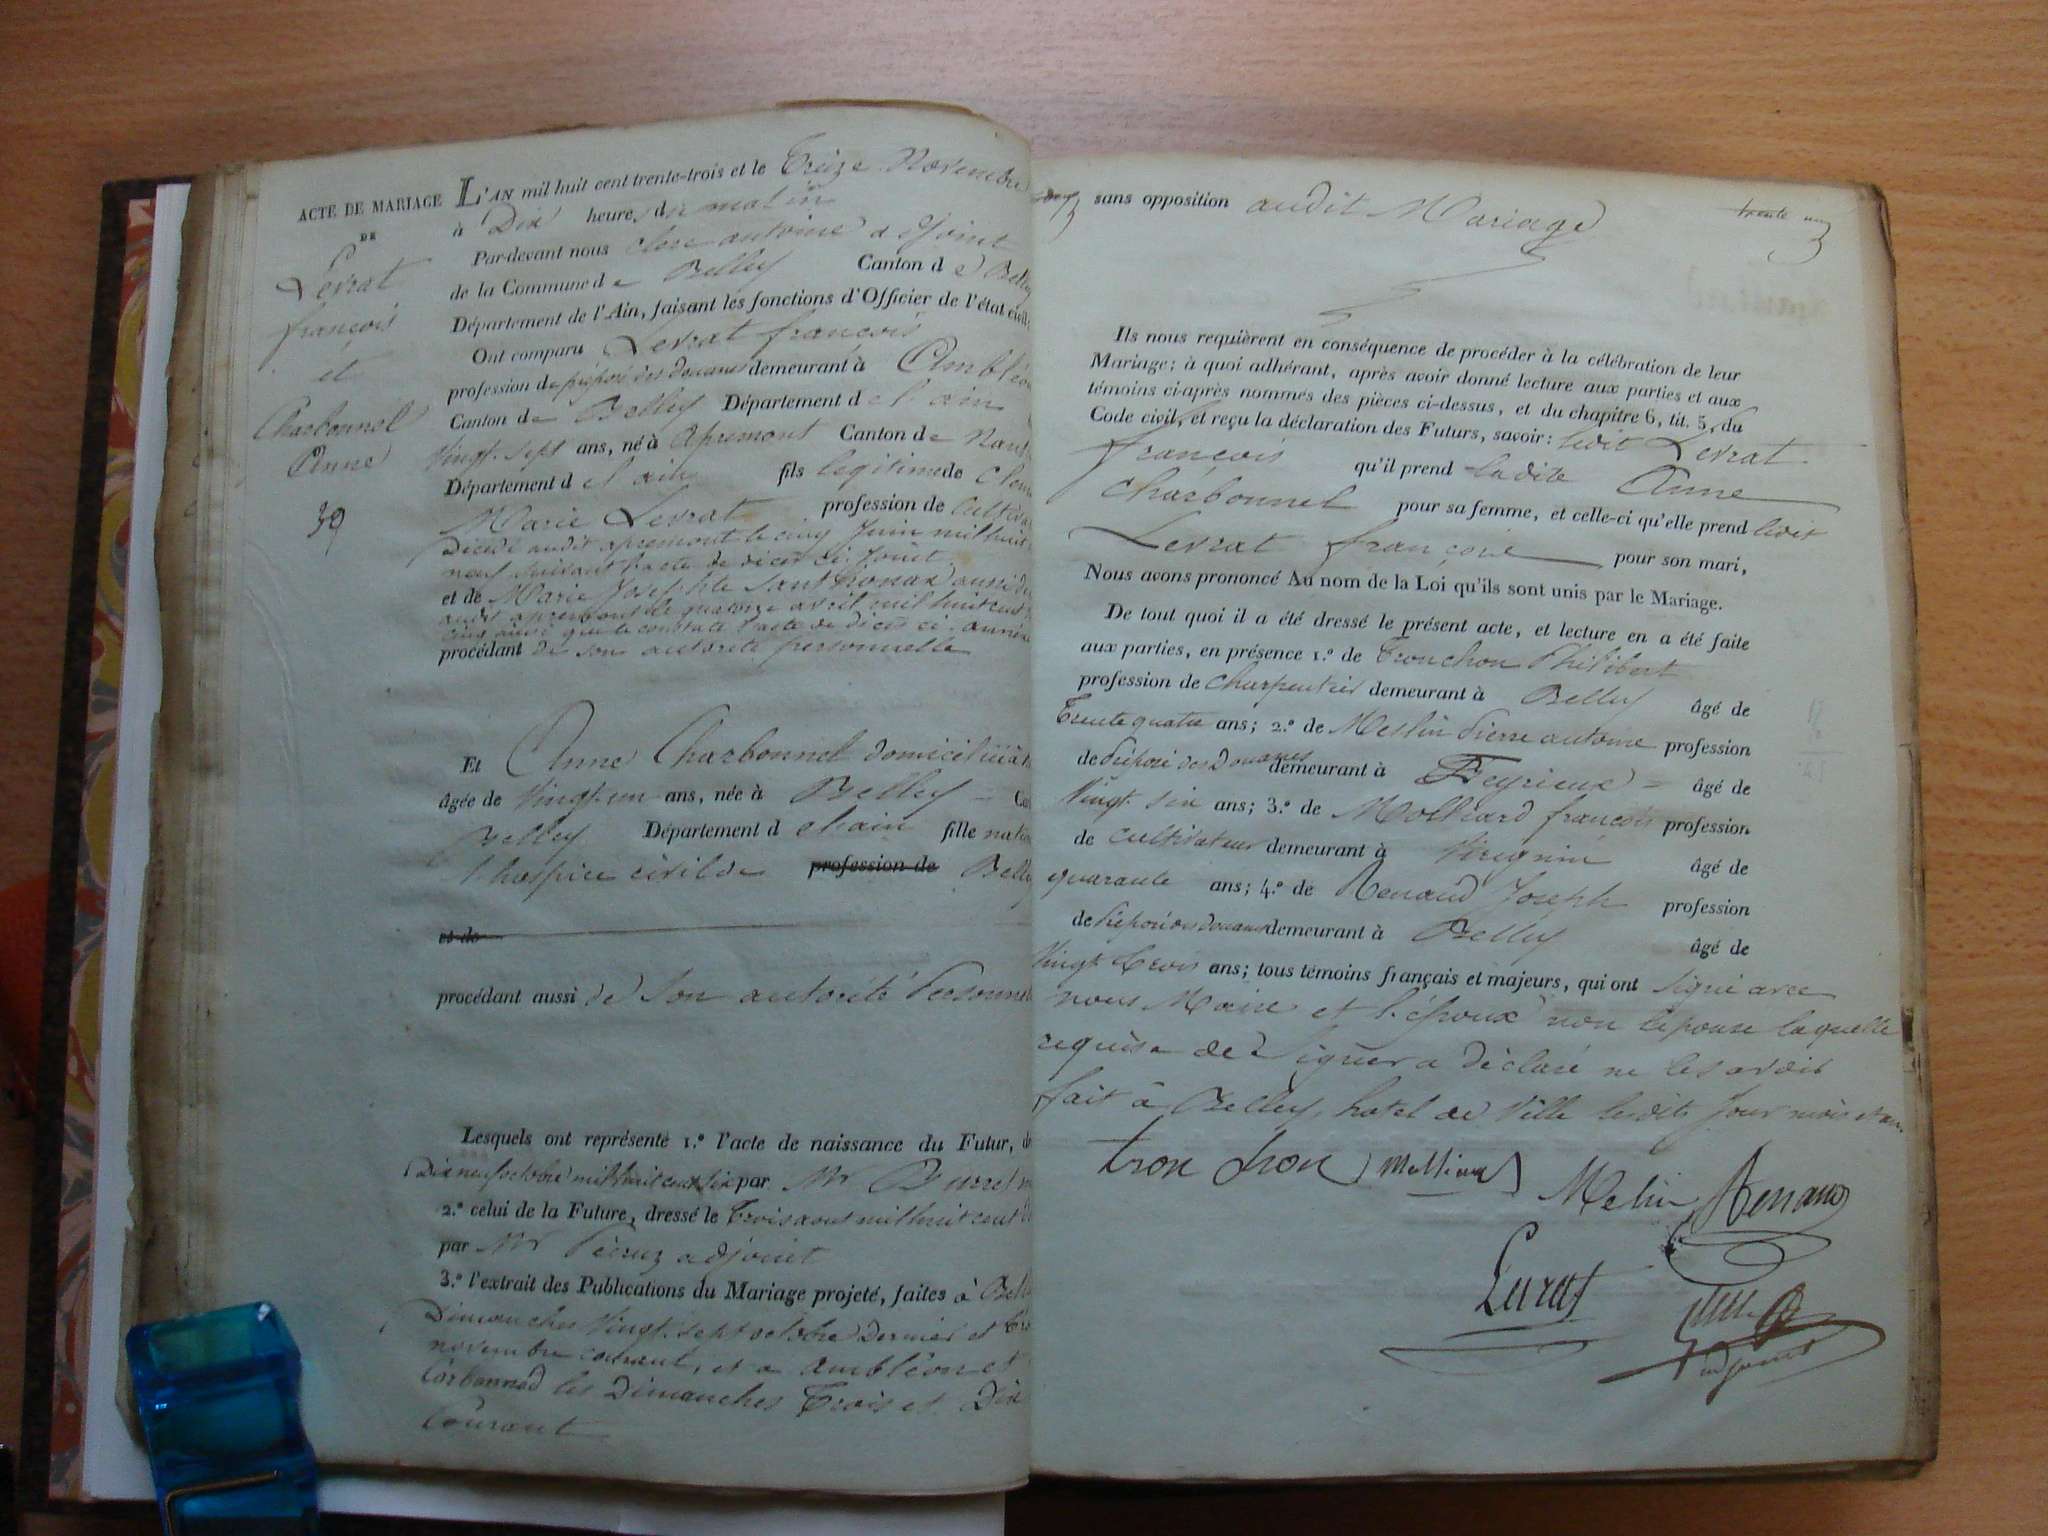 ACTE DE MARIAGE
DE
Levrat
françois
et
Charbonnel
Anne
39
L'AN mil huit cent trente-trois et le Treize Novembre
à Dix heure du matin
Par-devant nous antoine adjoint
de la Commune de Belley Canton de Belley
Département de l'Ain, faisant les fonctions d'Officier de l'état civil.
Ont comparu Levrat françois
profession de préposé des Douanes demeurant à Ambléon
Canton de Belley Département de l'ain
Vingt-sept ans, né à Apremont Canton de
Département de l'ain fils légitime de
Marie Levrat profession de
Décédé audit apremont le cinq Juin mil huit
neuf suivant l'acte de décès ci-joint
et de Marie Josephte aussi
audit apremont le quatorze avril mil huit cent
cinq ainsi que le constate l'acte de décès ci-
procédant de son autorité personnelle
Et Anne Charbonnel domiciliée à
âgée de Vingt-un ans, née à Belley
Belley Département de l'ain fille
l'hospice civil de profession de Belley
et de
procédant aussi de son autorité Personnel
Lesquels ont représenté 1.º l'acte de naissance du Futur,
Dix neuf octobre mil huit cent six par Mr
2.º celui de la Future, dressé le Trois aout mil huit cent
par Mr adjoint
3.º l'extrait des Publications du Mariage projeté, faites à
Dimanches Vingt-sept octobre Dernier et
novembre courant, et a ambléon et
les Dimanches Trois et Dix
Courant
trente un
sans opposition audit Mariage
Ils nous requièrent en conséquence de procéder à la célébration de leur
Mariage; à quoi adhérant, après avoir donné lecture aux parties et aux
témoins ci-après nommés des pièces ci-dessus, et du chapitre 6, tit. 5, du
Code civil, et reçu la déclaration des Futurs, savoir: ledit Levrat
françois qu'il prend ladite Anne
Charbonnel pour sa femme, et celle-ci qu'elle prend ledit
Levrat françois pour son mari,
Nous avons prononcé Au nom de la Loi qu'ils sont unis par le Mariage.
De tout quoi il a été dressé le présent acte, et lecture en a été faite
aux parties, en présence 1.º de Tronchon Philibert
profession de Charpentier demeurant à Belley âgé de
Trente quatre ans; 2.º de Meslin Pierre antoine profession
de Préposé des Douanes demeurant à Peyrieux âgé de
Vingt six ans; 3.º de Molliard françois profession
de Cultivateur demeurant à Virignin âgé de
quarante ans; 4.º de Renaud Joseph profession
de Préposé des Douanes demeurant à Belley âgé de
Vingt-Trois ans; tous témoins français et majeurs, qui ont signé avec
nous Maire et l'époux non l'épouse laquelle
requise de signer a déclaré ne les avoir
fait à Belley, hotel de Ville ledit Jour mois et an.
tron chon Melin Renaud
Levrat
adjoint